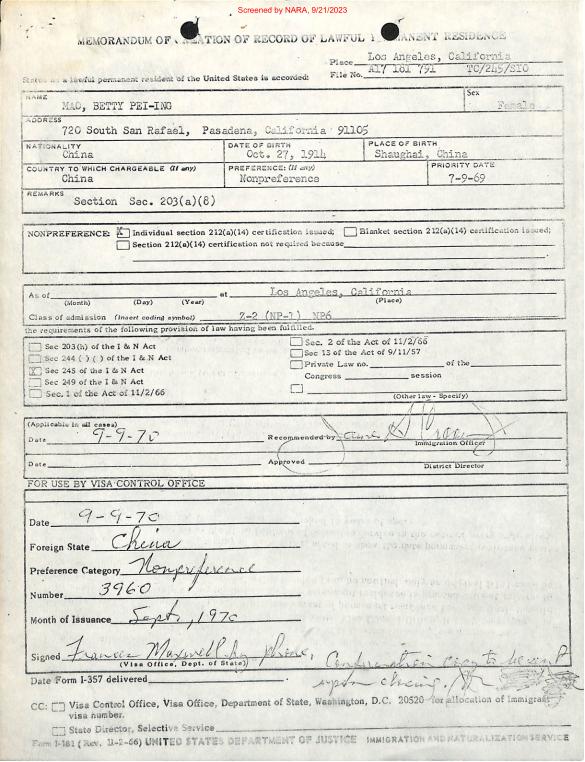 Screened by NARA, 9/21/2023
MEMORANDUM OF CREATION OF RECORD OF LAWFUL PERMANENT RESIDENCE
Place Los Angeles, California
File No. A17 181 791 TC/245/STO
Status as a lawful permanent resident of the United States is accorded:
NAME
MAO, BETTY PEI-ING
Sex
Female
ADDRESS
720 South San Rafael, Pasadena, California 91105
NATIONALITY
China
DATE OF BIRTH
Oct. 27, 1914
PLACE OF BIRTH
Shaughai, China
COUNTRY TO WHICH CHARGEABLE (If any)
China
PREFERENCE: (If any)
Nonpreference
PRIORITY DATE
7-9-69
REMARKS
Section Sec. 203(a)(8)
NONPREFERENCE: X Individual section 212(a)(14) certification issued; Blanket section 212(a)(14) certification issued;
Section 212(a)(14) certification not required because
As of at Los Angeles, California
(Month) (Day) (Year) (Place)
Class of admission (Insert coding symbol) Z-2 (NP-1) NP6
the requirements of the following provision of law having been fulfilled.
Sec 203(h) of the I & N Act
Sec 244 ( ) ( ) of the I & N Act
X Sec 245 of the I & N Act
Sec 249 of the I & N Act
Sec. 1 of the Act of 11/2/66
Sec. 2 of the Act of 11/2/66
Sec 13 of the Act of 9/11/57
Private Law no. of the
Congress session
(Other law - Specify)
(Applicable in all cases)
Date 9-9-70 Recommended by
Immigration Officer
Date Approved
District Director
FOR USE BY VISA CONTROL OFFICE
Date 9-9-70
Foreign State China
Preference Category Nonpreference
Number 3960
Month of Issuance Sept, 1970
Signed Frances Maxwell by phone.
(Visa Office, Dept. of State)
Confirmation copy to be sent
upon
Date Form I-357 delivered
CC: Visa Control Office, Visa Office, Department of State, Washington, D.C. 20520 for allocation of immigrant
visa number.
State Director, Selective Service
Form I-181 (Rev. 11-2-66) UNITED STATES DEPARTMENT OF JUSTICE IMMIGRATION AND NATURALIZATION SERVICE